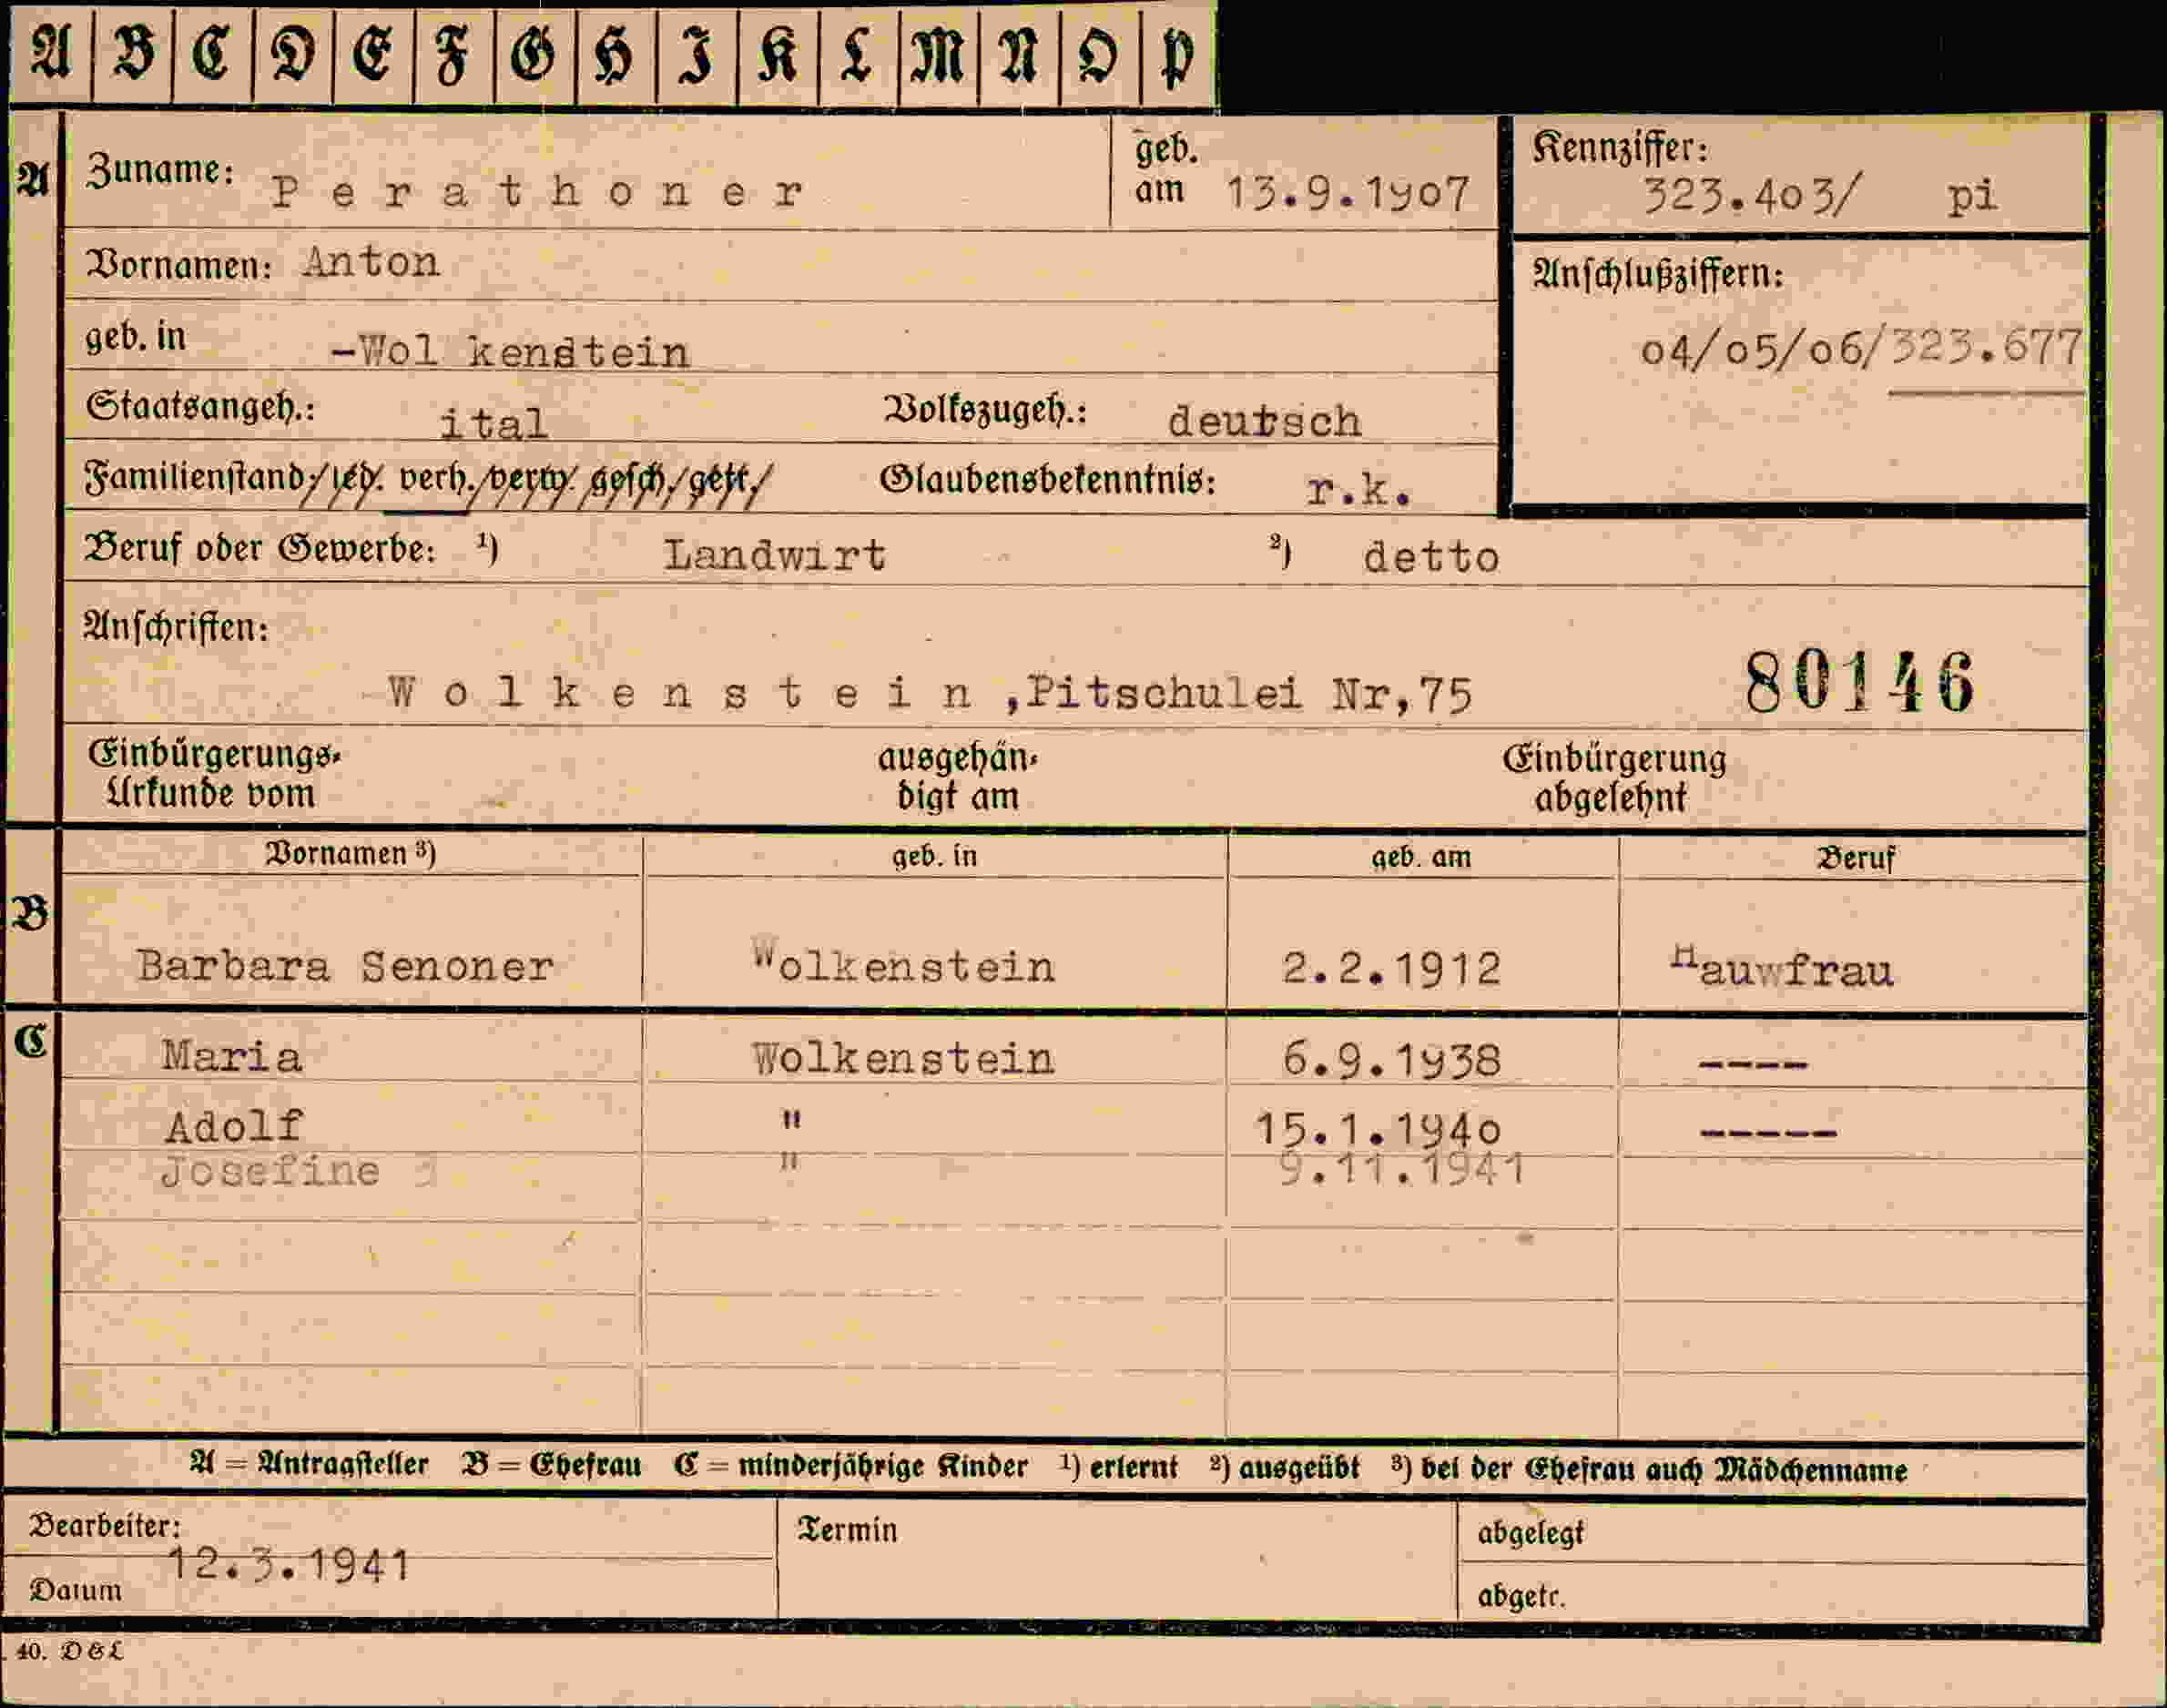 A B C D E F G H I K L M N O P
A Zuname: Perathoner geb. am 13.9.1907 Kennziffer: 323.403/ pi
Vornamen: Anton Anschlußziffern:
geb. in -Wol kenstein 04/05/06/323.677
Staatsangeh.: ital Volkszugeh.: deutsch
Familienstand/led. verh./verw. gesch./getr./ Glaubensbekenntnis: r.k.
Beruf oder Gewerbe: ¹) Landwirt ²) detto
Anschriften:
Wolkenstein,Pitschulei Nr,75 80146
Einbürgerungs- ausgehän- Einbürgerung
Urkunde vom digt am abgelehnt
Vornamen ³) geb. in geb. am Beruf
B
Barbara Senoner Wolkenstein 2.2.1912 Hauwfrau
C Maria Wolkenstein 6.9.1938 ----
Adolf " 15.1.1940 -----
Josefine " 9.11.1941
A = Antragsteller B = Ehefrau C = minderjährige Kinder ¹) erlernt ²) ausgeübt ³) bei der Ehefrau auch Mädchenname
Bearbeiter: Termin abgelegt
12.3.1941
Datum abgetr.
40. DGL